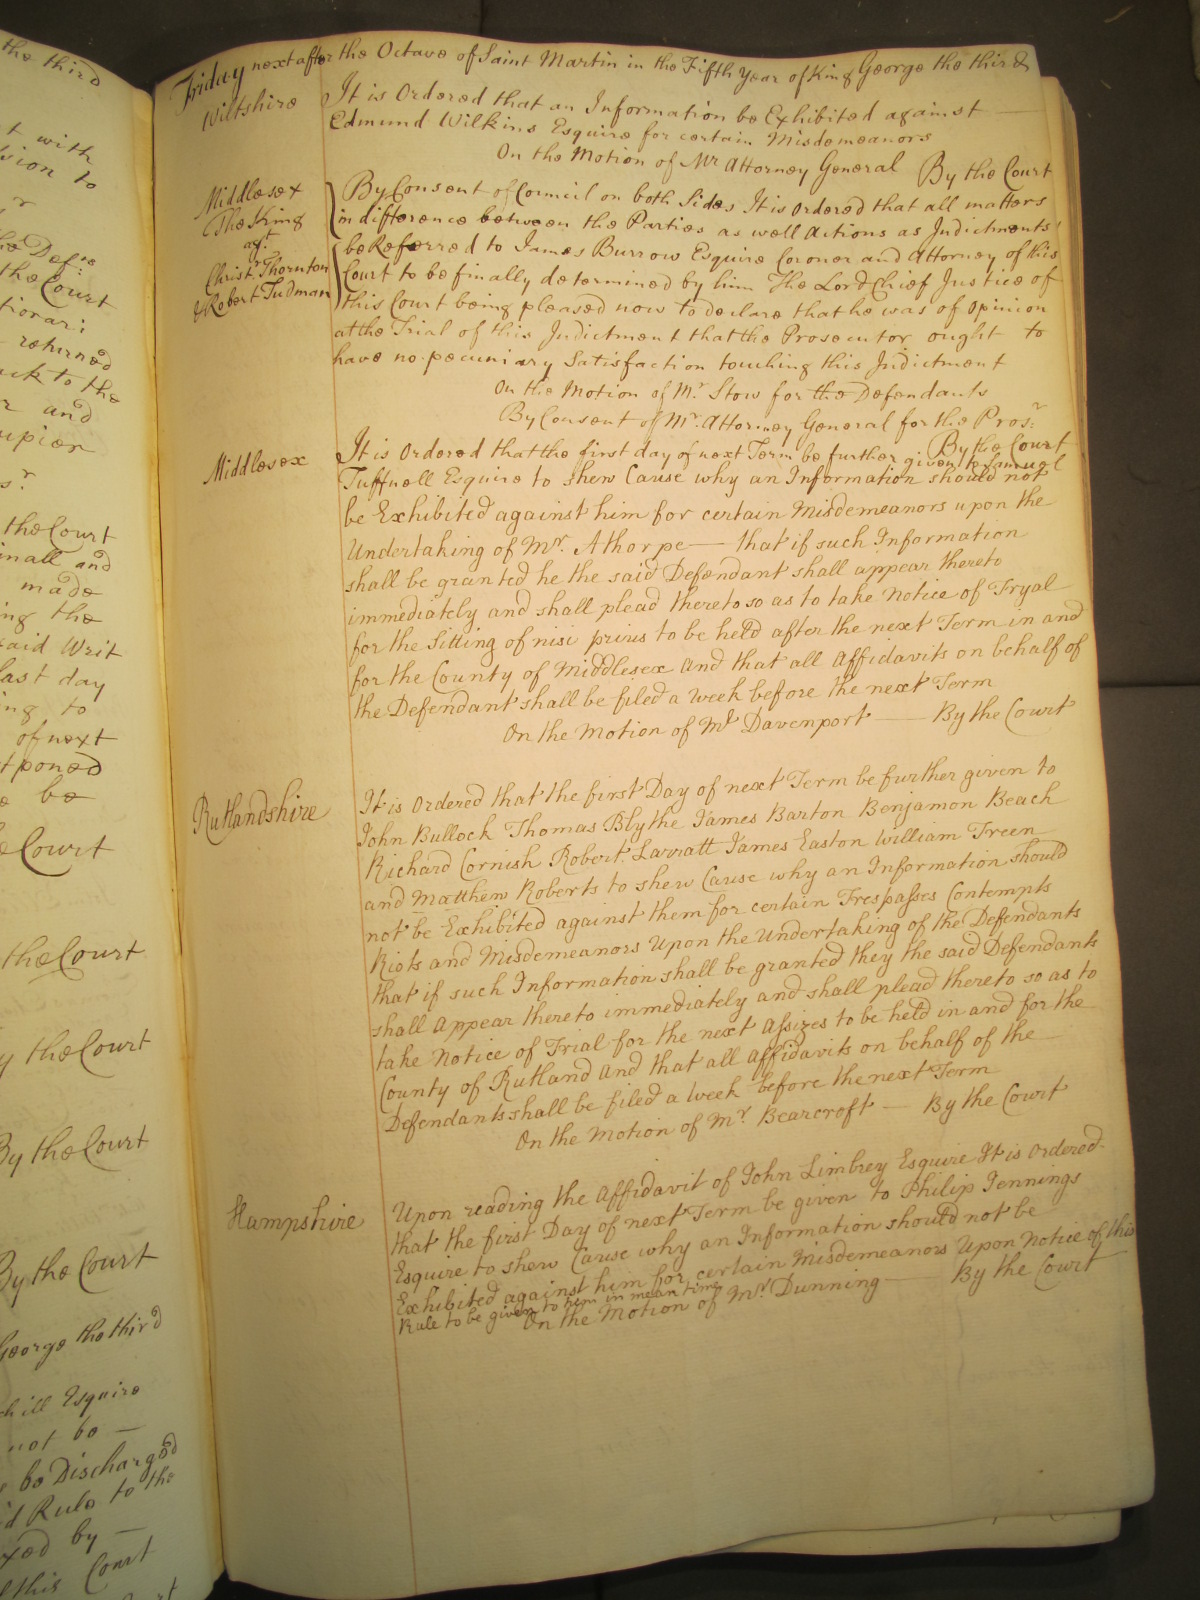 the third
t with
sion to
r
he Def:ts
the Court
tiorari
returned
ack to the
r and
upier
s.r
the Court
inall and
made
ing the
said Writ
last day
ing to
of next
tponed
be
Court
the Court
y the Court
By the Court
By the Court
George the third
chill Esquire
not be —
be Discharged
d Rule to the
xed by —
this Court
Friday next after the Octave of Saint Martin in the Fifth Year of King George the third
Wiltshire
It is Ordered that an Information be Exhibited against
Edmund Wilkins Esquire for certain Misdemeanors
On the Motion of Mr Attorney General By the Court
Middlesex
The King
agt.
Christr. Thornton
& Robert Tudman
By Consent of Council on both Sides It is ordered that all matters
in difference between the Parties as well Actions as Indictments
be Referred to James Burrow Esquire Coroner and Attorney of this
Court to be finally determined by him The Lord Chief Justice of
this Court being pleased now to declare that he was of Opinion
at the Trial of this Indictment that the Prosecutor ought to
have no pecuniary Satisfaction touching this Indictment
On the Motion of Mr. Stow for the Defendants
By Consent of Mr. Attorney General for the Prosr:
By the Court
Middlesex
It is Ordered that the first day of next Term be further given to Samuel
Tuffnell Esquire to shew Cause why an Information should not
be Exhibited against him for certain Misdemeanors upon the
Undertaking of Mr. Athorpe — that if such Information
shall be granted he the said Defendant shall appear thereto
immediately and shall plead thereto so as to take Notice of Tryal
for the Sitting of nisi prius to be held after the next Term in and
for the County of Middlesex and that all Affidavits on behalf of
the Defendant shall be filed a Week before the next Term
On the Motion of Mr Davenport — By the Court
Rutlandshire
It is Ordered that the first Day of next Term be further given to
John Bullock Thomas Blythe James Barton Benjamon Beach
Richard Cornish Robert Larratt James Easton William Treen
and Matthew Roberts to shew Cause why an Information should
not be Exhibited against them for certain Trespasses Contempts
Riots and Misdemeanors Upon the Undertaking of the Defendants
that if such Information shall be granted they the said Defendants
shall Appear thereto immediately and shall plead thereto so as to
take Notice of Trial for the next Assizes to be held in and for the
County of Rutland And that all Affidavits on behalf of the
Defendants shall be filed a Week before the next Term
On the Motion of Mr. Bearcroft — By the Court
Hampshire
Upon reading the Affidavit of John Limbrey Esquire It is Ordered
that the first Day of next Term be given to Philip Jennings
Esquire to shew Cause why an Information should not be
Exhibited against him for certain Misdemeanors Upon Notice of this
Rule to be given to him in mean time
On the Motion of Mr. Dunning — By the Court